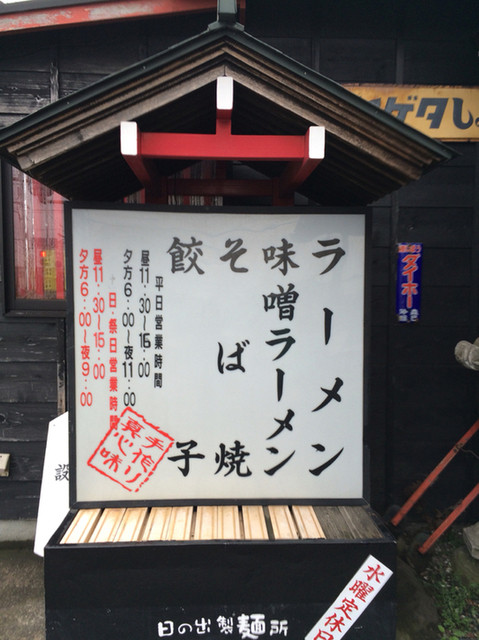 ラーメン
味噌ラーメン
そば 焼
餃子
平日営業時間
昼11:30〜15:00
夕方6:00〜夜11:00
日・祭日営業時間
昼11:30〜15:00
夕方6:00〜夜9:00
手作り
真心味
ゲタし
ダイホー
設
水曜定休日
日の出製麺所